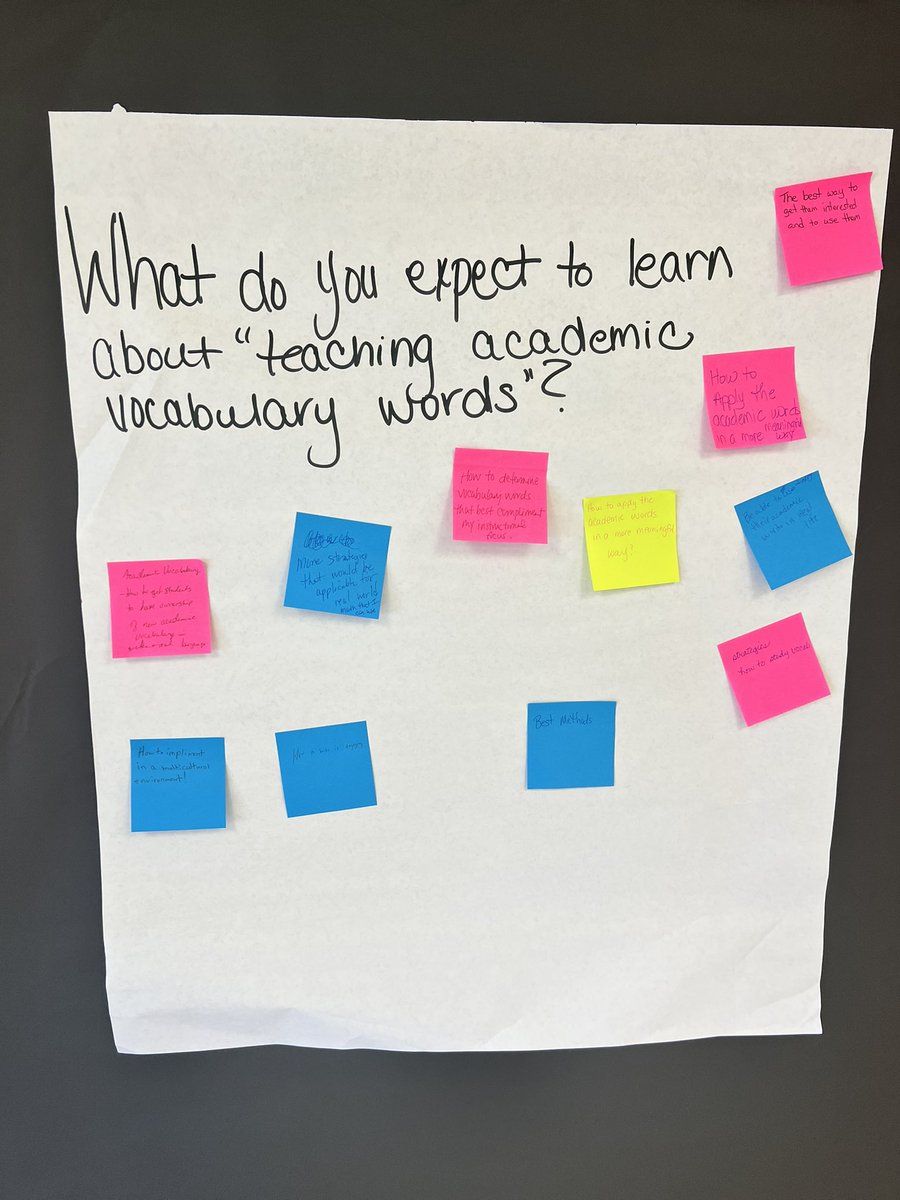 What do you expect to learn
about "teaching academic
vocabulary words"?
The best way to
get them interested
and to use them
How to
Apply the
academic words
in a more meaningful
way
How to determine
vocabulary words
that best compliment
my instructional
focus.
How to apply the
academic words
in a more meaningful
way?
Be able to
academic
words in real
life
More strategies
that would be
applicable for
real world
math that I
can use
Academic Vocabulary
- How to get students
to have ownership
of new academic
vocabulary -
language
strategies
how to study vocab
How to impliment
in a multicultural
environment!
Best Methods